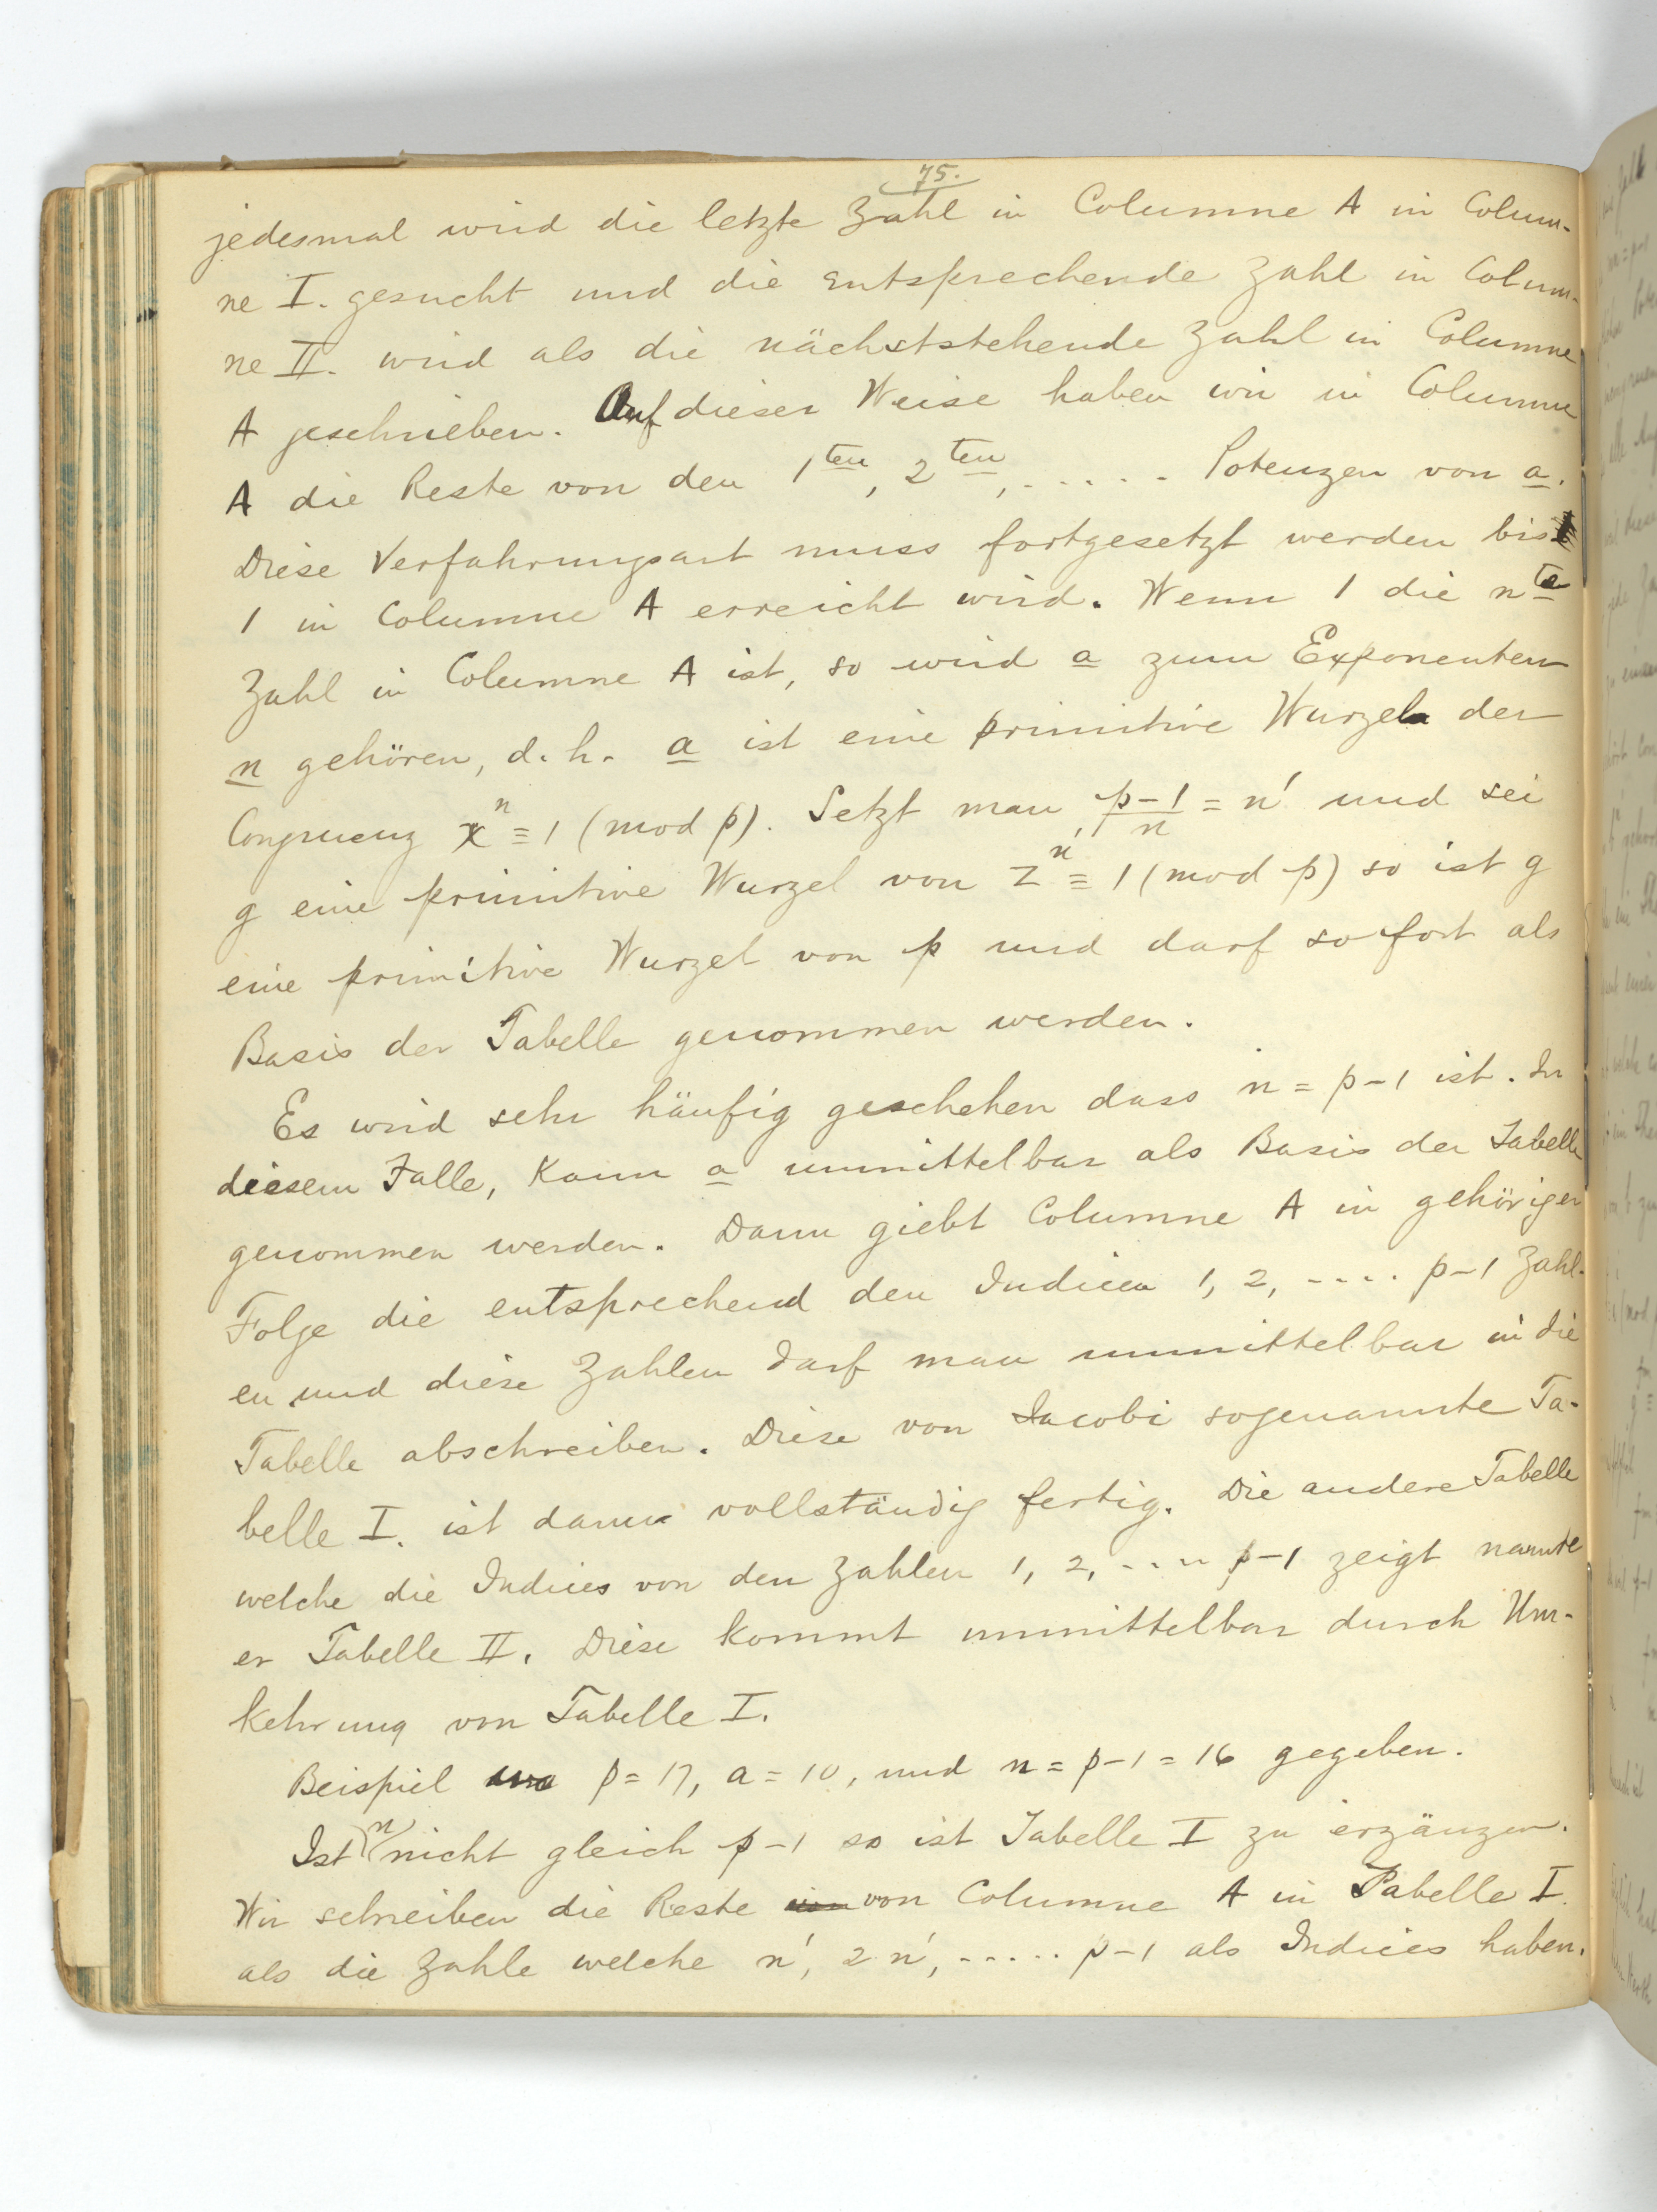 75.
jedesmal wird die letzte Zahl in Columne A in Colum-
ne I. gesucht und die entsprechende Zahl in Colum-
ne II. wird als die nächststehende Zahl in Columne
A geschrieben. Auf dieser Weise haben wir in Columne
A die Reste von den 1ten, 2ten, . . . . . Potenzen von a.
Diese Verfahrungsart muss fortgesetzt werden bis
1 in Columne A erreicht wird. Wenn 1 die nte
Zahl in Columne A ist, so wird a zum Exponenten
n gehören, d. h. a ist eine primitive Wurzel der
Congruenz x^n ≡ 1 (mod p). Setzt man (p-1)/n = n' und sei
g eine primitive Wurzel von z^n' ≡ 1 (mod p) so ist g
eine primitive Wurzel von p und darf sofort als
Basis der Tabelle genommen werden.
Es wird sehr häufig geschehen dass n = p-1 ist. In
diesem Falle, kann a unmittelbar als Basis der Tabelle
genommen werden. Dann giebt Columne A in gehöriger
Folge die entsprechend den Indicen 1, 2, - - - . p-1 Zahl-
en und diese Zahlen darf man unmittelbar in die
Tabelle abschreiben. Diese von Jacobi sogenannte Ta-
belle I. ist dann vollständig fertig. Die andere Tabelle
welche die Indices von den Zahlen 1, 2, - - - - p-1 zeigt nannte
er Tabelle II. Diese kommt unmittelbar durch Um-
kehrung von Tabelle I.
Beispiel p = 17, a = 10, und n = p-1 = 16 gegeben.
Ist n nicht gleich p-1 so ist Tabelle I zu erzänzen.
Wir schreiben die Reste von Columne A in Tabelle I.
als die Zahle welche n', 2n', - - . . . p-1 als Indices haben.